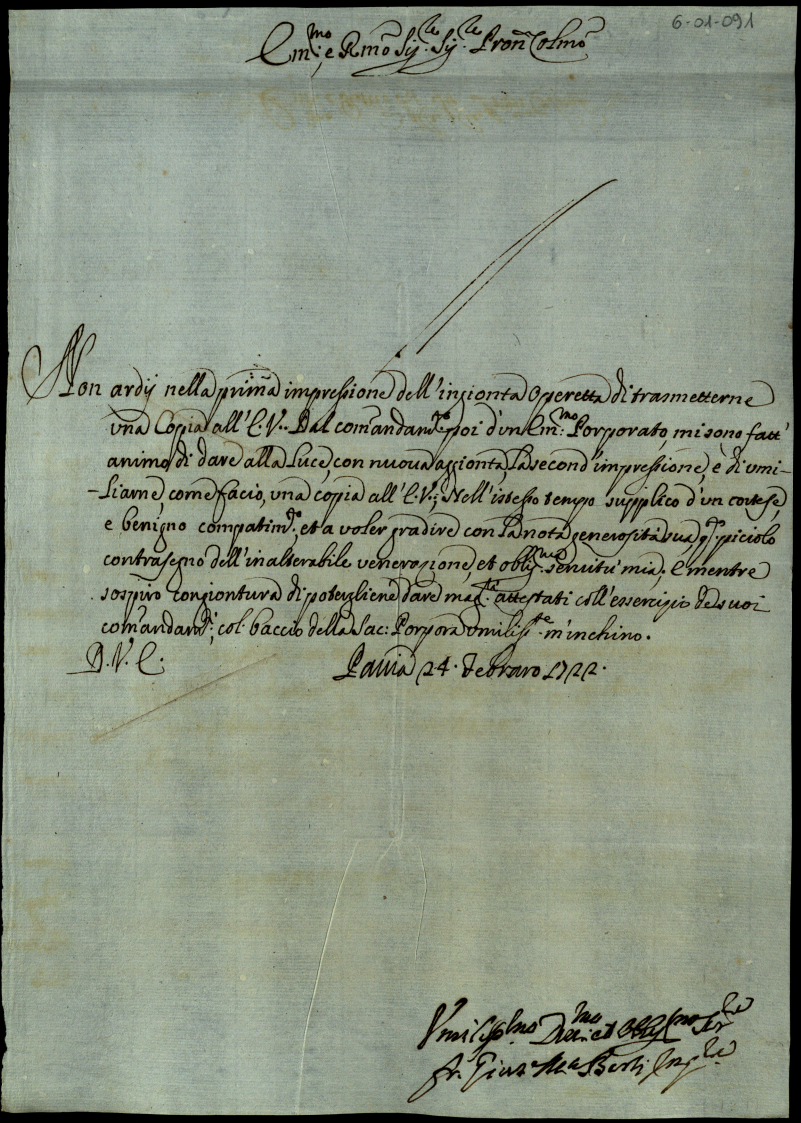 6-01-091
Em.mo e Rmõ Sig.re Sig.re Pron Colmõ
Non ardij nella prima impressione dell'ingionta Operetta di trasmetterne
una Copia all'E. V.. Dal comandam.to poi d'un Em.mo Porporato, mi sono fatt'
animo di dare alla Luce, con nuova aggionta, la second'impressione, e di umi-
-liarne, come facio, una copia all'E. V.; Nell'istesso tempo supplico d'un cortese,
e benigno compatim.to, et a voler gradire con la nota generosità sua q.to piciolo
contrasegno dell'inalterabile venerazione, et oblig.ma servitù mia. E mentre
sospiro congiontura di potergliene dare mag.ri attestati coll'essercizio de suoi
comandam.ti, col baccio della Sac: Porpora umiliss.te m'inchino.
D. V. E. Pavia 24. Febraro 1722.
Umiliss.mo Dev.mo et Oblig.mo Ser.re
fr. Gius.e M.a Berti Inq.re